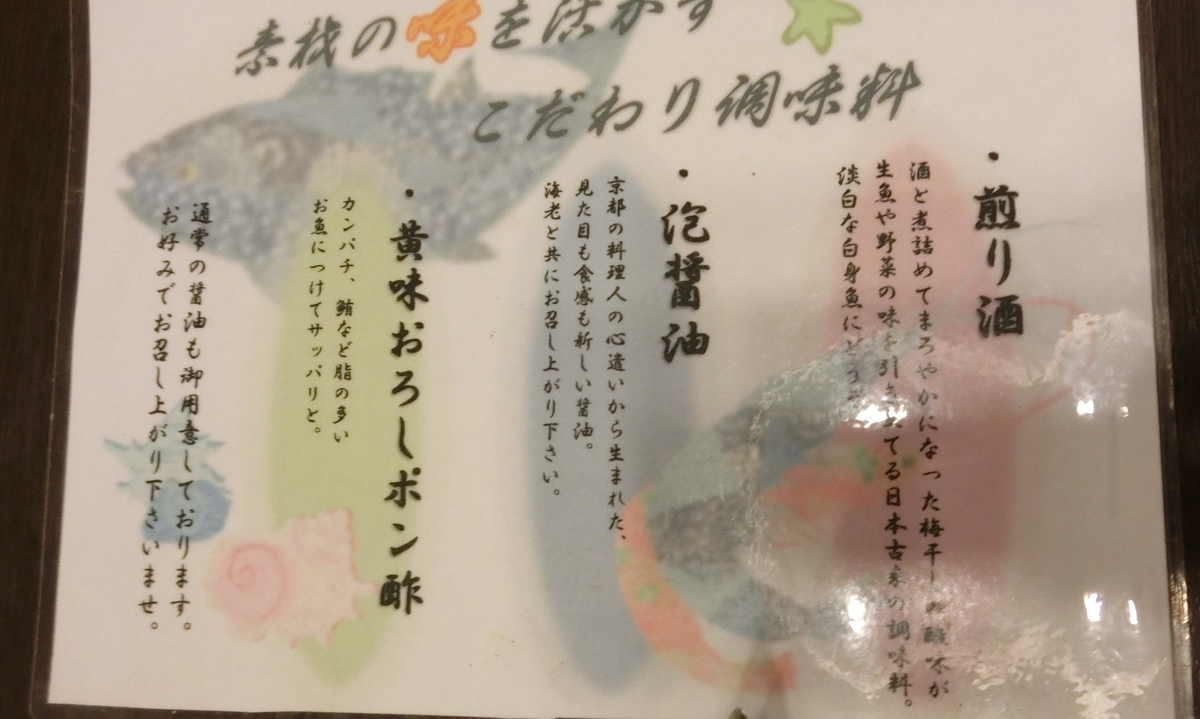 素材の味を活かす
こだわり調味料
・煎り酒
酒と煮詰めてまろやかになった梅干しの酸味が
生魚や野菜の味を引き立てる日本古来の調味料。
淡白な白身魚にどうぞ
・泡醤油
京都の料理人の心遣いから生まれた、
見た目も食感も新しい醤油。
海老と共にお召し上がり下さい。
・黄味おろしポン酢
カンパチ、鮪など脂の多い
お魚につけてサッパリと。
通常の醤油も御用意しております。
お好みでお召し上がり下さいませ。